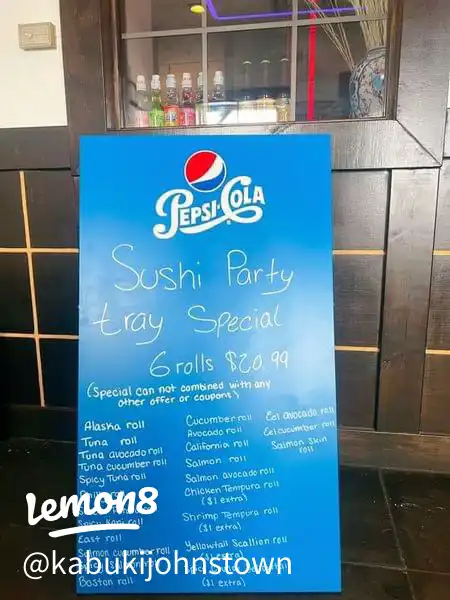 PEPSI·COLA
Sushi Party
tray Special
6 rolls $20.99
(Special can not combined with any
other offer or coupons)
Alaska roll
Tuna roll
Tuna avocado roll
Tuna cucumber roll
Spicy Tuna roll
Spicy Kani roll
East roll
Salmon cucumber roll
Boston roll
Cucumber roll
Avocado roll
California roll
Salmon roll
Salmon avocado roll
Chicken Tempura roll
($1 extra)
Shrimp Tempura roll
($1 extra)
Yellowtail Scallion roll
($1 extra)
Eel avocado roll
Eel cucumber roll
Salmon Skin
roll
lemon8
@kabukijohnstown